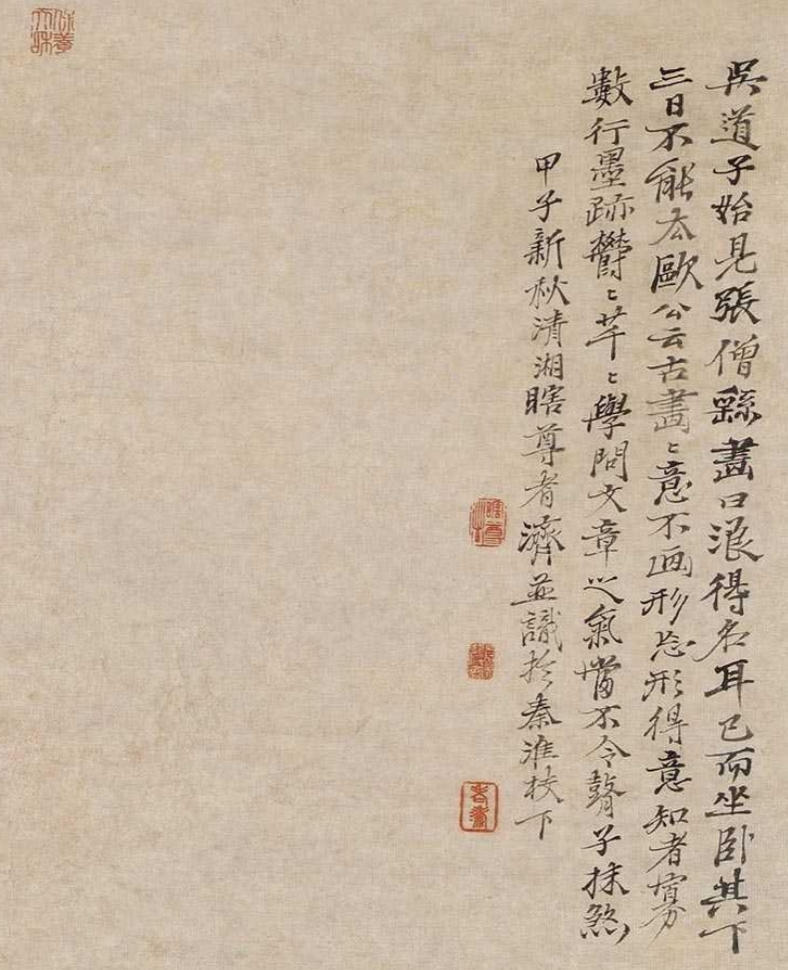 吳道子始見張僧繇畫曰浪得名耳已而坐臥其下
三日不能去歐公云古畫〻意不画形忘形得意知者寡
數行墨跡欝〻芊〻學問文章之氣當不令瞽子抹煞
甲子新秋清湘瞎尊者濟並識於秦淮枝下